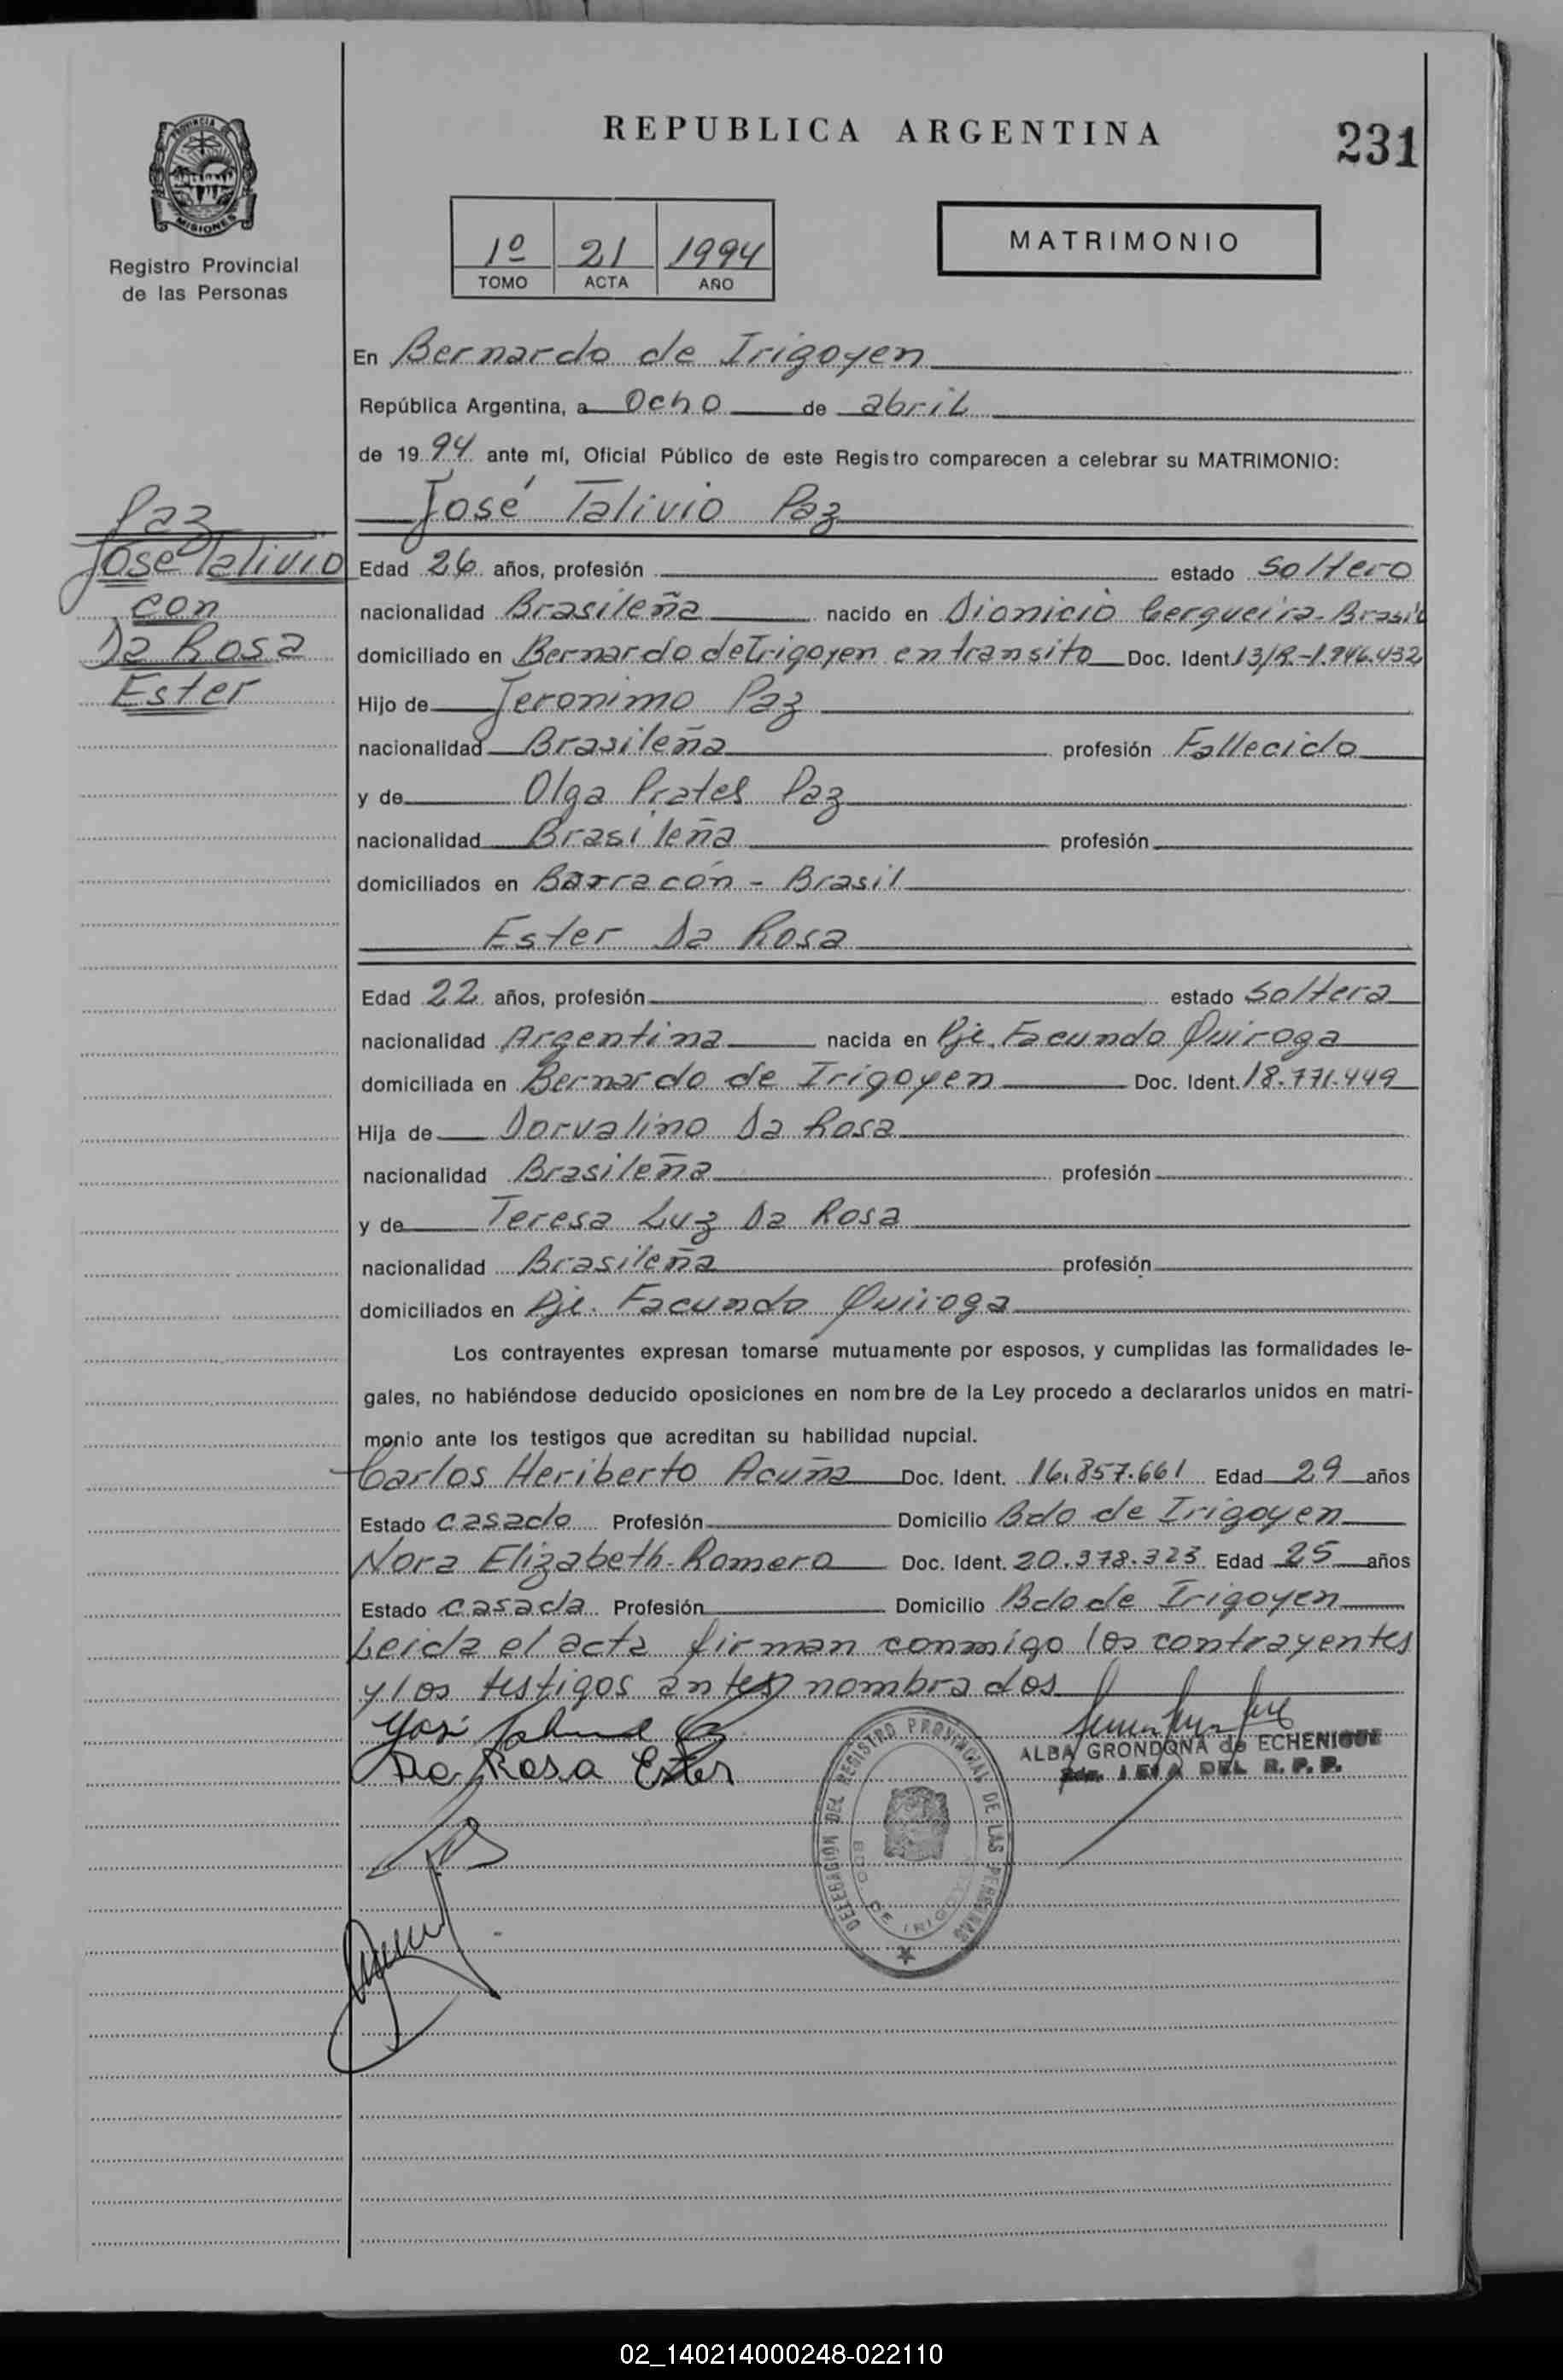 REPUBLICA ARGENTINA
231
PROVINCIA DE
MISIONES
Registro Provincial
de las Personas
1º 21 1994
TOMO ACTA AÑO
MATRIMONIO
En Bernardo de Irigoyen
República Argentina, a Ocho de abril
de 1994 ante mí, Oficial Público de este Registro comparecen a celebrar su MATRIMONIO:
José Talivio Paz
Paz
José Talivio
con
Da Rosa
Ester
Edad 26 años, profesión estado Soltero
nacionalidad Brasileña nacido en Dionicio Cerqueira-Brasil
domiciliado en Bernardo de Irigoyen en transito Doc. Ident. 13/R-1.946.432
Hijo de Jeronimo Paz
nacionalidad Brasileña profesión Fallecido
y de Olga Prates Paz
nacionalidad Brasileña profesión
domiciliados en Barracón - Brasil
Ester Da Rosa
Edad 22 años, profesión estado Soltera
nacionalidad Argentina nacida en Pje. Facundo Quiroga
domiciliada en Bernardo de Irigoyen Doc. Ident. 18.771.449
Hija de Dorvalino Da Rosa
nacionalidad Brasileña profesión
y de Teresa Luz Da Rosa
nacionalidad Brasileña profesión
domiciliados en Pje. Facundo Quiroga
Los contrayentes expresan tomarse mutuamente por esposos, y cumplidas las formalidades le-
gales, no habiéndose deducido oposiciones en nombre de la Ley procedo a declararlos unidos en matri-
monio ante los testigos que acreditan su habilidad nupcial.
Carlos Heriberto Acuña Doc. Ident. 16.857.661 Edad 29 años
Estado Casado Profesión Domicilio Bdo de Irigoyen
Nora Elizabeth Romero Doc. Ident. 20.378.323 Edad 25 años
Estado Casada Profesión Domicilio Bdo de Irigoyen
Leida el acta firman conmigo los contrayentes
y los testigos antes nombrados
Da Rosa Ester
ALBA GRONDONA de ECHENIQUE
DEL R. P. P.
DELEGACIÓN DEL REGISTRO PROVINCIAL DE LAS PERSONAS
BDO. DE IRIGOYEN
02_140214000248-022110